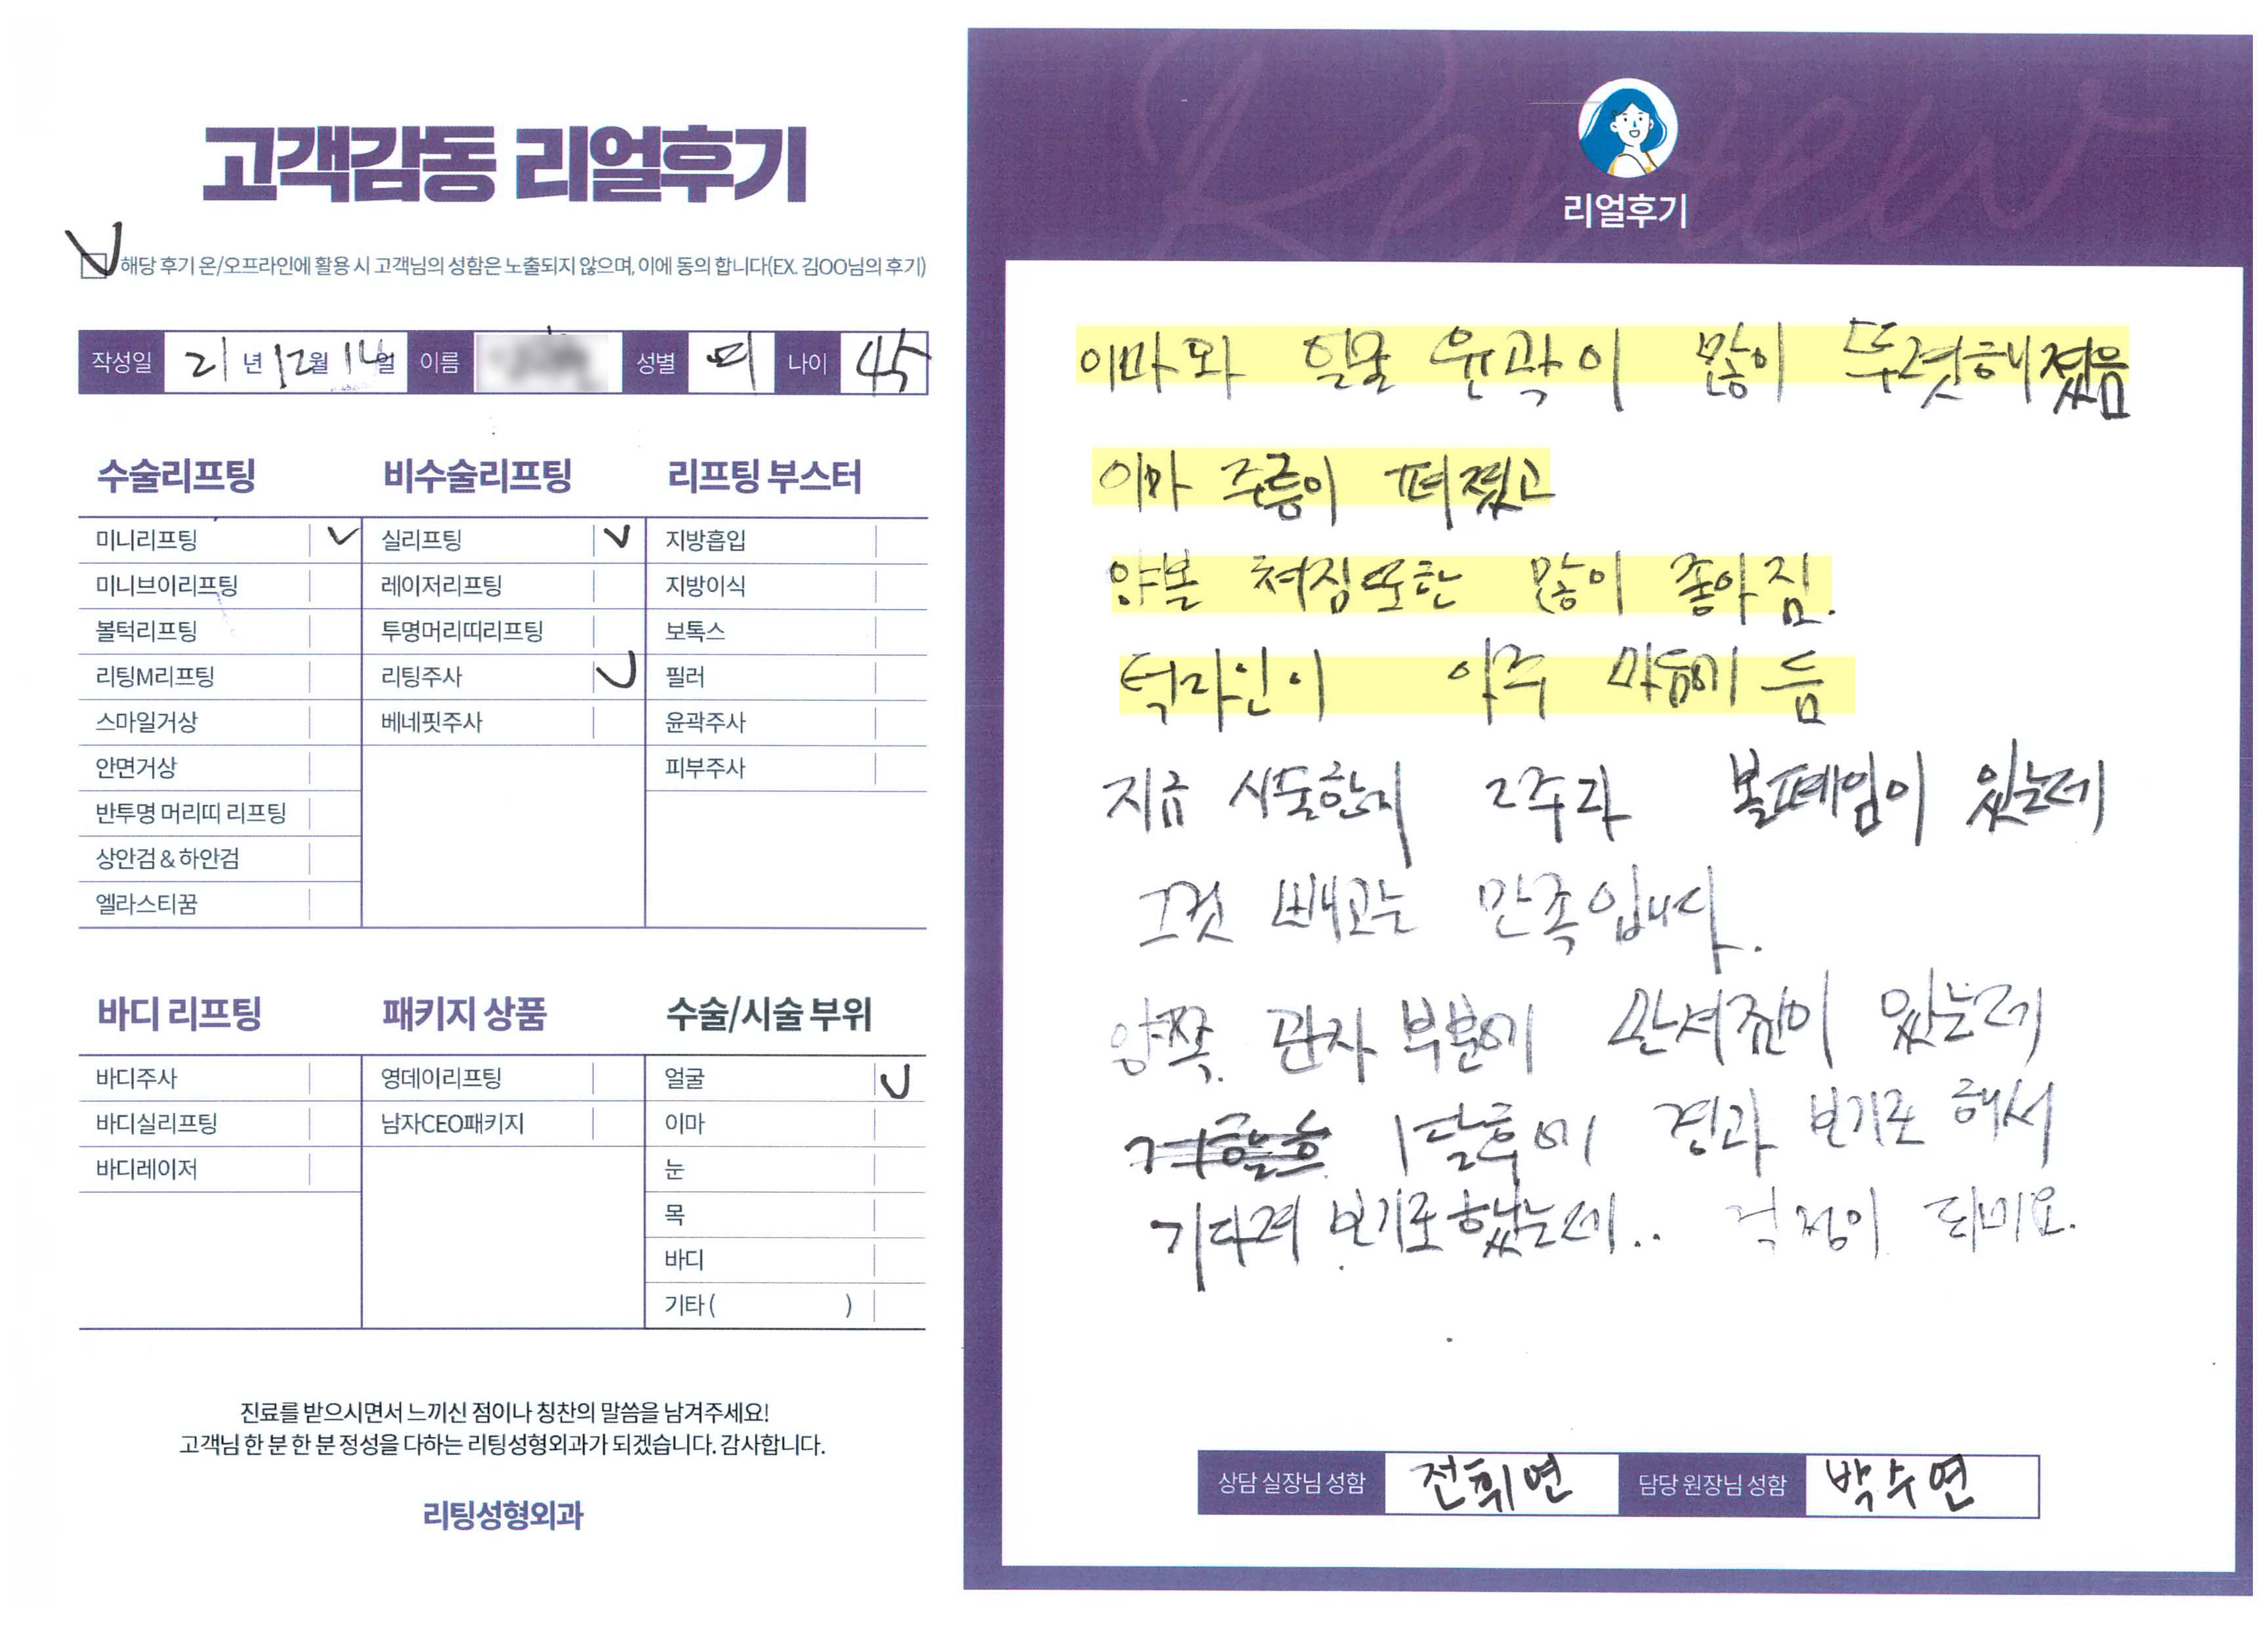 고객감동 리얼후기
해당 후기 온/오프라인에 활용 시 고객님의 성함은 노출되지 않으며, 이에 동의 합니다(EX. 김OO님의 후기)
작성일 21년 12월 14일 이름 성별 여 나이 45
수술리프팅
미니리프팅
미니브이리프팅
볼턱리프팅
리팅M리프팅
스마일거상
안면거상
반투명 머리띠 리프팅
상안검 & 하안검
엘라스티꿈
비수술리프팅
실리프팅
레이저리프팅
투명머리띠리프팅
리팅주사
베네핏주사
리프팅 부스터
지방흡입
지방이식
보톡스
필러
윤곽주사
피부주사
바디 리프팅
바디주사
바디실리프팅
바디레이저
패키지 상품
영데이리프팅
남자CEO패키지
수술/시술 부위
얼굴
이마
눈
목
바디
기타 ( )
진료를 받으시면서 느끼신 점이나 칭찬의 말씀을 남겨주세요!
고객님 한 분 한 분 정성을 다하는 리팅성형외과가 되겠습니다. 감사합니다.
리팅성형외과
Review
리얼후기
이마와 얼굴 윤곽이 많이 뚜렷해졌음
이마 주름이 펴졌고
양볼 쳐짐또한 많이 좋아짐.
턱라인이 아주 마음에 듬
지금 시술한지 2주라 볼패임이 있는데
그것 빼고는 만족입니다.
양쪽 관자 부분에 꺼짐이 있는데
1달후에 경과 보기로 해서
기다려 보기로했는데.. 걱정이 되네요.
상담 실장님 성함 전휘연 담당 원장님 성함 박수연